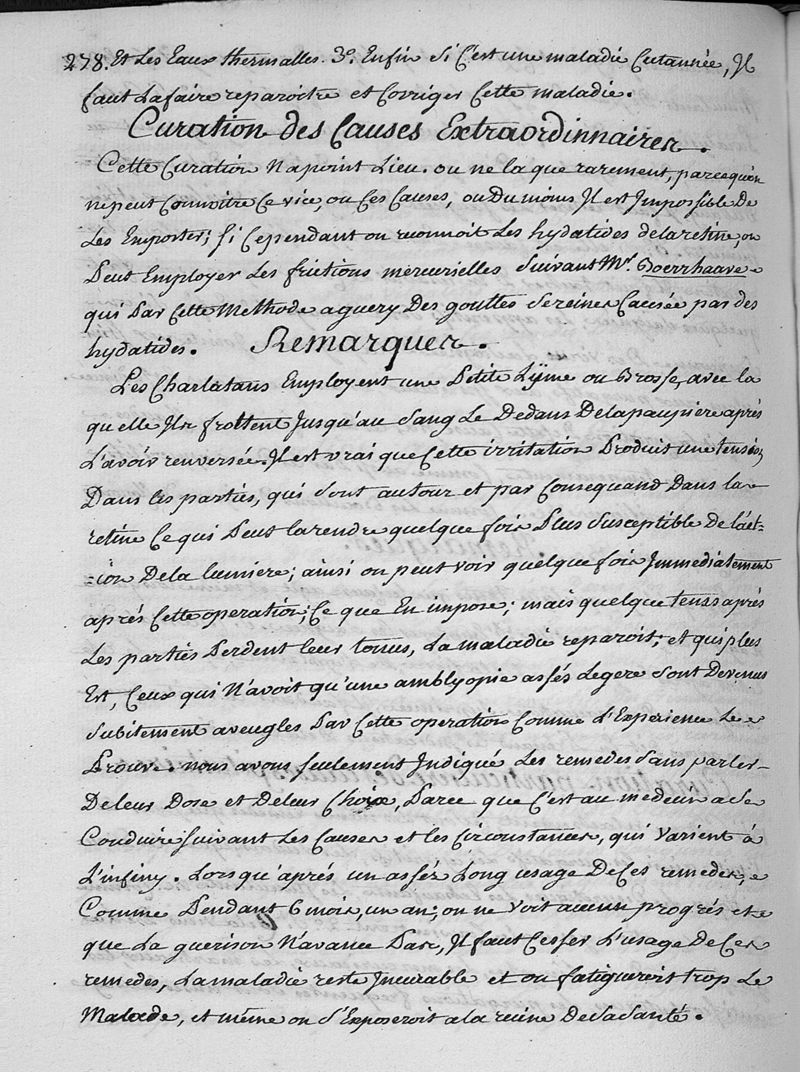 278. Et Les Eaux thermalles. 3°. Enfin si C'est une maladie Cutannée, Il
faut La faire reparoitre et Corriger Cette maladie.
Curation des Causes Extraordinnaires.
Cette Curation N'a point Lieu. ou ne la que rarement, parcequ'on
ne peut Connoitre Ce vice, ou Ces Causes, ou Du moins Il est Impossible De
Les Emporter; si Cependant on reconnoit Les hydatides de la retine, on
Peut Employer Les frictions mercurielles Suivant Mr. Boerrhaave
qui Par Cette Methode a guery Des gouttes Sereines Causée par des
hydatides. Remarques.
Les Charlatans Employent une Petite Lÿme ou Brosse, avec la
quelle Ils frottent Jusqu'au Sang Le Dedans De la paupiere aprés
L'avoir renversée. Il est vrai que Cette irritation Produit une tension
Dans les parties, qui sont autour et par Consequand Dans la
retine Ce qui Peut la rendre quelque fois Plus Susceptible De l'act-
-ion De la lumiere; ainsi on peut voir quelque fois Immediatement
aprés Cette operation; Ce que En impose; mais quelque tenss aprés
Les parties Perdent leur tonus, La maladie reparoit; et qui plus
Est, Ceux qui N'avoit qu'une amblyopie assés Legere sont Devenus
Subitement aveugles Par Cette operation Comme l'Experience Le
Prouve. nous avons seulement Indiqué Les remedes Sans parler
De leur Dose et De leur Choix, Parce que C'est au medecin a Se
Conduire suivant Les Causes et les Circonstances, qui Varient à
L'infiny. Lorsqu'aprés un assés Long usage De Ces remedes,
Comme Pendant 6 mois, un an, on ne Voit aucun progrés et
que La guerison N'avance Pas, Il faut Cesser L'usage De Ces
remedes, La maladie reste Incurable et on fatigueroit trop Le
Malade, et même on S'Exposeroit a la ruine De Sa Santé.